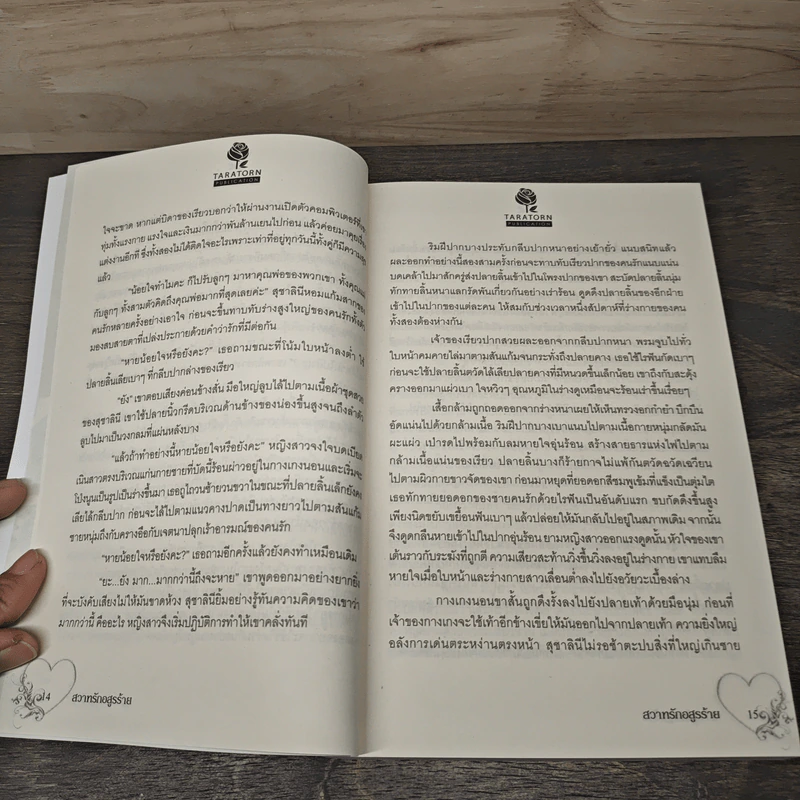 TARATORN
PUBLICATION
ใจจะขาด หากแต่บิดาของเรียวบอกว่าให้ผ่านงานเปิดตัวคอมพิวเตอร์ที่เขา
ทุ่มทั้งแรงกาย แรงใจและเงินมากกว่าพันล้านเยนไปก่อน แล้วค่อยมาคุยเรื่อง
แต่งงานอีกที ซึ่งทั้งสองไม่ได้ติดใจอะไรเพราะเท่าที่อยู่ทุกวันนี้ทั้งคู่ก็มีความ
แล้ว
"น้อยใจทำไมคะ ก็ไปรับลูกๆ มาหาคุณพ่อของพวกเขา ทั้งคุณแม่
กับลูกๆ ทั้งสามตัวคิดถึงคุณพ่อมากที่สุดเลยค่ะ" สุชาลินีหอมแก้มสากของ
คนรักหลายครั้งอย่างเอาใจ ก่อนจะขึ้นทาบทับร่างสูงใหญ่ของคนรักทั้งตัว
มองสบสายตาที่เปล่งประกายด้วยคำว่ารักที่มีต่อกัน
"หายน้อยใจหรือยังคะ?" เธอถามขณะที่โน้มใบหน้าลงต่ำ ใช้
ปลายลิ้นเลียเบาๆ ที่กลีบปากล่างของเรียว
"ยัง" เขาตอบเสียงค่อนข้างสั่น มือใหญ่ลูบไล้ไปตามเนื้อผ้าชุดสวย
ของสุชาลินี เขาใช้ปลายนิ้วกรีดบริเวณด้านข้างของน่องขึ้นสูงจนถึงลำตัว
ลูบไปมาเป็นวงกลมที่แผ่นหลังบาง
"แล้วถ้าทำอย่างนี้หายน้อยใจหรือยังคะ" หญิงสาวจงใจบดเบียด
เนินสาวตรงบริเวณแก่นกายชายที่บัดนี้ร้อนผ่าวอยู่ในกางเกงนอนและเริ่มจะ
โป่งนูนเป็นรูปเป็นร่างขึ้นมา เธอถูไถวนซ้ายวนขวาในขณะที่ปลายลิ้นเล็กยังคง
เลียไล้กลีบปาก ก่อนจะไล้ไปตามแนวคางปาดเป็นทางยาวไปตามสันแก้ม
ชายหนุ่มถึงกับครางฮือกับเจตนาปลุกเร้าอารมณ์ของคนรัก
"หายน้อยใจหรือยังคะ?" เธอถามอีกครั้งแล้วยังคงทำเหมือนเดิม
"ยะ...ยัง มาก...มากกว่านี้ถึงจะหาย" เขาพูดออกมาอย่างยากยิ่ง
ที่จะบังคับเสียงไม่ให้มันขาดห้วง สุชาลินียิ้มอย่างรู้ทันความคิดของเขาว่า
มากกว่านี้ คืออะไร หญิงสาวจึงเริ่มปฏิบัติการทำให้เขาคลั่งทันที
14
สวาทรักอสูรร้าย
TARATORN
PUBLICATION
ริมฝีปากบางประทับกลีบปากหนาอย่างเย้ายั่ว แนบสนิทแล้ว
ผละออกทำอย่างนี้สองสามครั้งก่อนจะทาบทับเรียวปากของคนรักแนบแน่น
บดเคล้าไปมาสักครู่ส่งปลายลิ้นเข้าไปในโพรงปากของเขา สะบัดปลายลิ้นนุ่ม
ทักทายลิ้นหนาและกรัดพันเกี่ยวกันอย่างเร่าร้อน ดูดดึงปลายลิ้นของอีกฝ่าย
เข้าไปในปากของแต่ละคน ให้สมกับช่วงเวลาหนึ่งสัปดาห์ที่ร่างกายของคน
ทั้งสองต้องห่างกัน
เจ้าของเรียวปากสวยผละออกจากกลีบปากหนา พรมจูบไปทั่ว
ใบหน้าคมคายไล่มาตามสันแก้มจนกระทั่งถึงปลายคาง เธอใช้ไรฟันกัดเบาๆ
ก่อนจะใช้ปลายลิ้นตวัดไล้เลียปลายคางที่มีหนวดขึ้นเล็กน้อย เขาถึงกับสะดุ้ง
ครางออกมาแผ่วเบา ใจหวิวๆ อุณหภูมิในร่างดูเหมือนจะร้อนเร่าขึ้นเรื่อยๆ
เสื้อกล้ามถูกถอดออกจากร่างหนาเผยให้เห็นทรวงอกกำยำ บึกบึน
อัดแน่นไปด้วยกล้ามเนื้อ ริมฝีปากบางเบาแนบไปตามเนื้อกายหนุ่มกลัดมัน
ผะแผ่ว เป่ารดไปพร้อมกับลมหายใจอุ่นร้อน สร้างสายธารแห่งไฟไปตาม
กล้ามเนื้อแน่นของเรียว ปลายลิ้นบางก็ร้ายกาจไม่แพ้กันตวัดฉวัดเฉวียน
ไปตามผิวกายขาวจัดของเขา ก่อนมาหยุดที่ยอดอกสีชมพูเข้มที่แข็งเป็นตุ่มไต
เธอทักทายยอดอกของชายคนรักด้วยไรฟันเป็นอันดับแรก ขบกัดดึงขึ้นสูง
เพียงนิดขยับเขยื้อนฟันเบาๆ แล้วปล่อยให้มันกลับไปอยู่ในสภาพเดิม จากนั้น
จึงดูดกลืนหายเข้าไปในปากอุ่นร้อน ยามหญิงสาวออกแรงดูดนั้น หัวใจของเขา
เต้นราวกับระฆังที่ถูกตี ความเสียวสะท้านวิ่งขึ้นวิ่งลงอยู่ในร่างกาย เขาแทบลืม
หายใจเมื่อใบหน้าและร่างกายสาวเลื่อนต่ำลงไปยังอวัยวะเบื้องล่าง
กางเกงนอนขาสั้นถูกดึงรั้งลงไปยังปลายเท้าด้วยมือนุ่ม ก่อนที่
เจ้าของกางเกงจะใช้เท้าอีกข้างเขี่ยให้มันออกไปจากปลายเท้า ความยิ่งใหญ่
อลังการเด่นตระหง่านตรงหน้า สุชาลินีไม่รอช้าตะปบสิ่งที่ใหญ่เกินชาย
สวาทรักอสูรร้าย
15